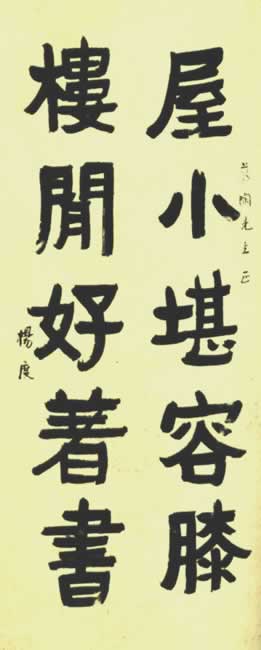 陶先生正
屋小堪容膝
樓閒好著書
楊度